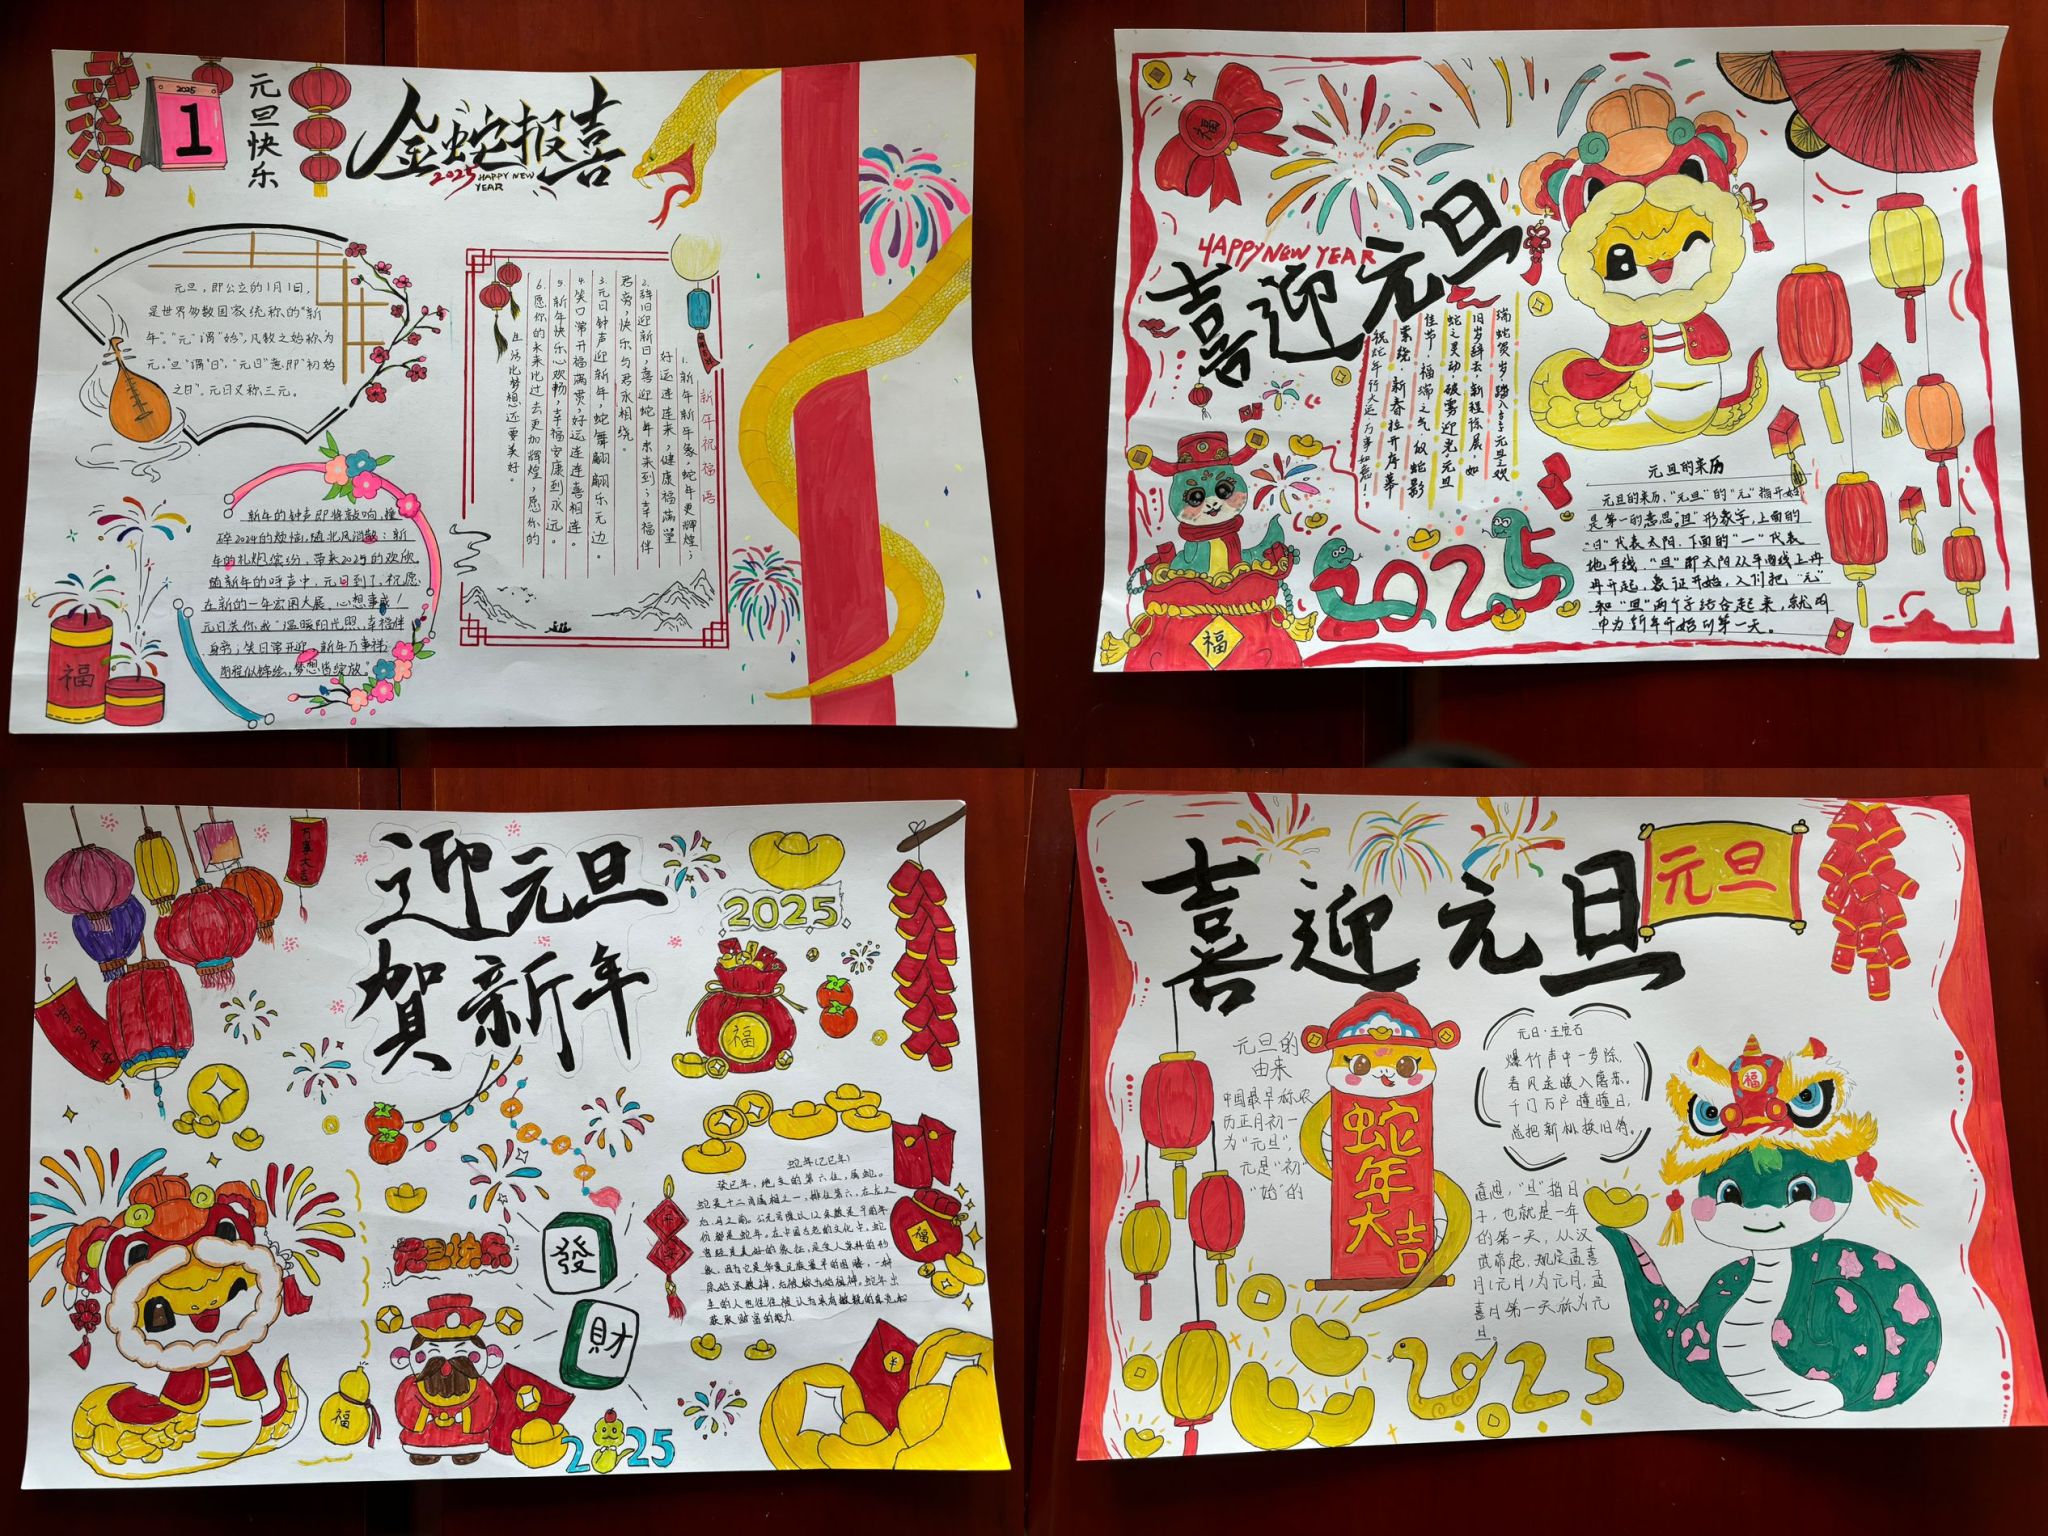 2025
1
元旦快乐
金蛇报喜
2025 HAPPY NEW
YEAR
元旦，即公立的1月1日，
是世界多数国家统称的“新
年”。“元”谓“始”，凡数之始称为
元。“旦”谓“日”，“元日”意即“初始
之日”。元日又称三元。
新年祝福语
1.新年新年象，蛇年更辉煌；
好运连连来，健康福满堂
2.辞旧迎新日，喜迎蛇年来来到；幸福伴
君旁，快乐与君永相绕。
3.元日钟声迎新年，蛇舞翩翩乐无边。
4.笑口常开福满贯，好运连连喜相连。
5.新年快乐心欢畅，幸福安康到永远。
6.愿你的未来比过去更加辉煌，愿你的
生活比梦想还要美好。
新年的钟声即将敲响，撞
碎2024的烦恼，随北风消散；新
年的礼炮缤纷，带来2025的欢欣
随新年的呼声中，元日到了，祝愿
在新的一年宏图大展，心想事成！
温暖阳光照，幸福伴
身旁；笑口常开迎，新年万事祥
福
福
HAPPY NEW YEAR
喜迎元旦
瑞蛇贺岁，踏入元旦之欢
旧岁辞去，新程陈展，如
蛇之灵动，破雾迎光，元旦
佳节，福瑞之气，似蛇影
萦绕，新春拉开序幕
祝蛇年行大运，万事如意！
福
2025
元旦的来历
元旦的来历，“元旦”的“元”指开始
是第一的意思。“旦”形象字，上面的
“日”代表太阳，下面的“一”代表
地平线，“旦”即太阳从平线上冉
冉升起，象征开始，人们把“元”
和“旦”两个字结合起来，就
中为新年开始的第一天。
万事大吉
迎元旦
贺新年
2025
福
岁岁平安
蛇年(乙巳年)
癸巳年，地支的第六位，属蛇。
蛇是十二生肖之一，排位第六，在龙之
后马之前。公元
份都是蛇年。在中国古老的文化中，蛇
曾经是美好的象征，是
象，因为它是华夏民族最早的图腾，一种
原始宗教
生的人也往往被认为具有敏锐的
获取财富的能力
福
元旦快乐
發
財
平安
福
2025
喜迎元旦
元旦
元旦的
由来
中国最早称农
历正月初一
为“元旦”，
元是“初”
“始”的
蛇年大吉
元日·王安石
爆竹声中一岁除，
春风送暖入屠苏。
千门万户曈曈日，
总把新桃换旧符。
福
意思，“旦”指日
子，也就是一年
的第一天，从汉
武帝起，规定孟喜
月(元月)为元月，孟
喜月第一天称为元
旦。
2025